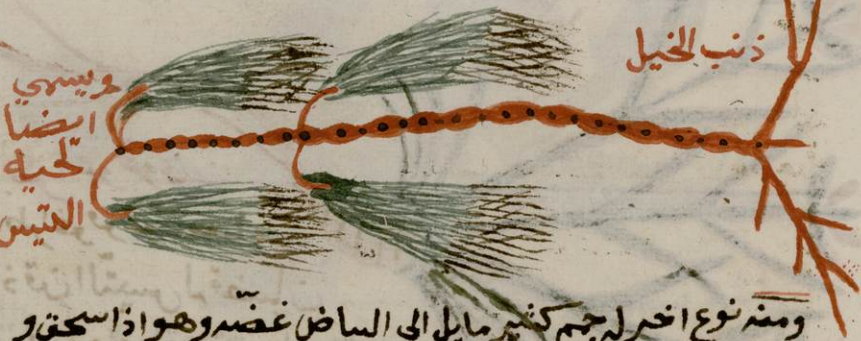 ذنب الخيل
ويسمي
ايضا
لحية
التيس
ومنه نوع اخر له جمم كثير مايل الى البياض غضّه وهو اذا سحق و